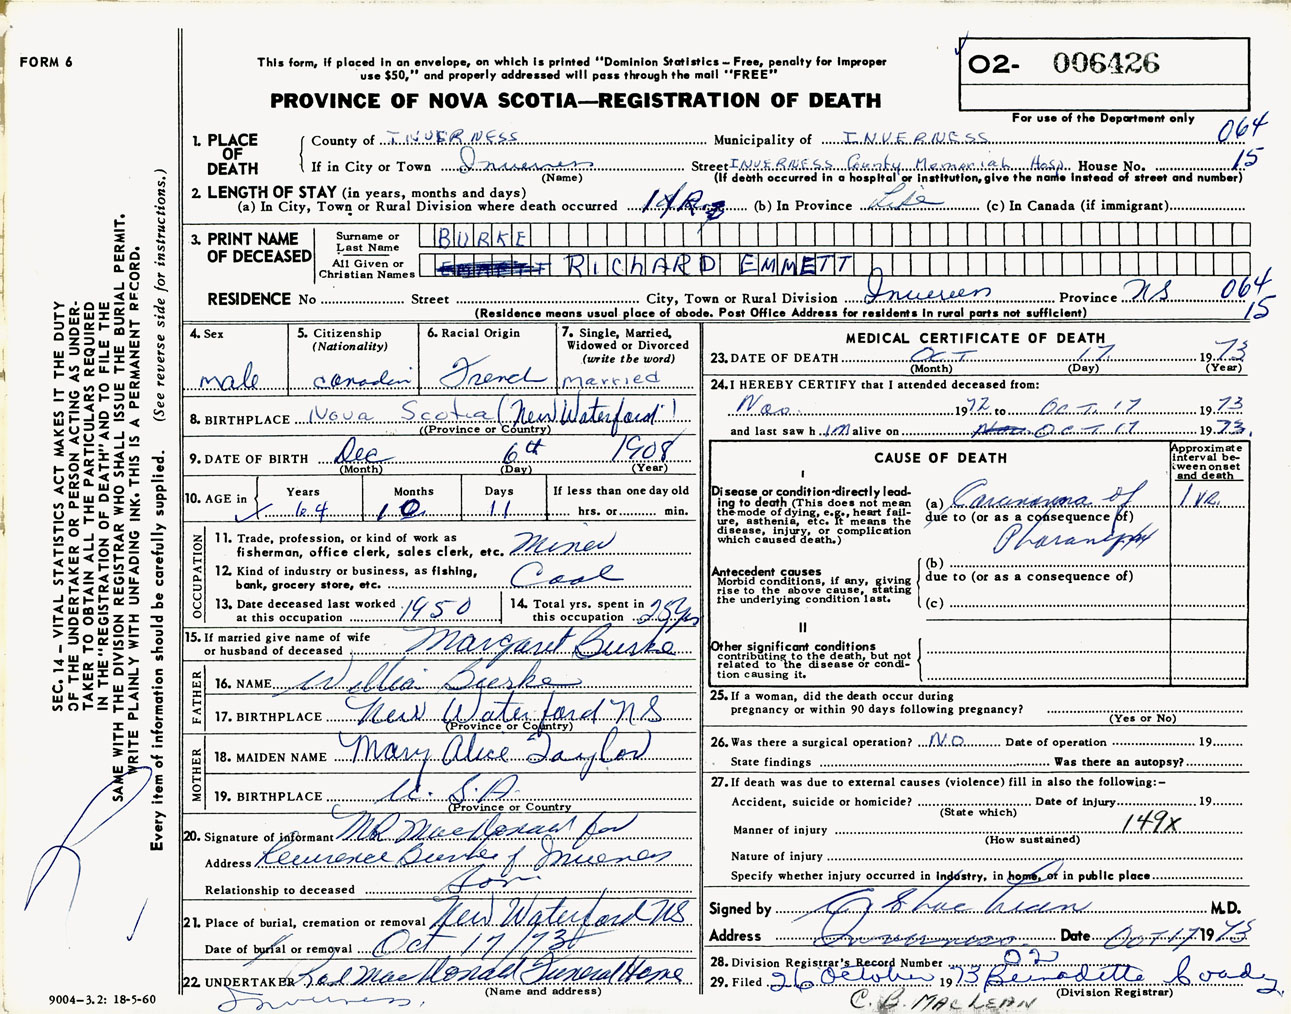 FORM 6
This form, if placed in an envelope, on which is printed "Dominion Statistics – Free, penalty for improper
use $50," and properly addressed will pass through the mail "FREE"
PROVINCE OF NOVA SCOTIA—REGISTRATION OF DEATH
O2- 006426
For use of the Department only
064
15
1. PLACE OF DEATH
County of INVERNESS Municipality of INVERNESS
If in City or Town Inverness Street INVERNESS County Memorial Hosp. House No.
(Name) (If death occurred in a hospital or institution, give the name instead of street and number)
2. LENGTH OF STAY (in years, months and days)
(a) In City, Town or Rural Division where death occurred (b) In Province Life (c) In Canada (if immigrant)
3. PRINT NAME OF DECEASED
Surname or Last Name BURKE
All Given or Christian Names RICHARD EMMETT
RESIDENCE No Street City, Town or Rural Division Inverness Province NS
064
15
(Residence means usual place of abode. Post Office Address for residents in rural parts not sufficient)
4. Sex
male
5. Citizenship
(Nationality)
Canadin
6. Racial Origin
French
7. Single, Married,
Widowed or Divorced
(write the word)
married
8. BIRTHPLACE Nova Scotia (New Waterford)
(Province or Country)
9. DATE OF BIRTH Dec 6th 1908
(Month) (Day) (Year)
10. AGE in
Years Months Days If less than one day old
64 10 11 hrs. or min.
OCCUPATION
11. Trade, profession, or kind of work as
fisherman, office clerk, sales clerk, etc. Miner
12. Kind of industry or business, as fishing,
bank, grocery store, etc. Coal
13. Date deceased last worked
at this occupation 1950
14. Total yrs. spent in
this occupation 25 yrs
15. If married give name of wife
or husband of deceased Margaret Burke
FATHER
16. NAME Willia Burke
17. BIRTHPLACE New Waterford NS
(Province or Country)
MOTHER
18. MAIDEN NAME Mary Alice Taylor
19. BIRTHPLACE U.S.A.
(Province or Country
20. Signature of informant MR MacDonald for
Address Lawrence Burke of Inverness
Relationship to deceased Son
21. Place of burial, cremation or removal New Waterford NS
Date of burial or removal Oct 17/73
22. UNDERTAKER Rod MacDonald Funeral Home
(Name and address)
Inverness.
MEDICAL CERTIFICATE OF DEATH
23. DATE OF DEATH OCT 17 1973
(Month) (Day) (Year)
24. I HEREBY CERTIFY that I attended deceased from:
Nov. 1972 to OCT. 17 1973
and last saw h im alive on OCT 17 1973.
CAUSE OF DEATH
Approximate
interval be-
tween onset
and death
I
Disease or condition directly lead-
ing to death (This does not mean
the mode of dying, e.g., heart fail-
ure, asthenia, etc. It means the
disease, injury, or complication
which caused death.)
(a) Carcinoma of 1 yr.
due to (or as a consequence of)
Antecedent causes
Morbid conditions, if any, giving
rise to the above cause, stating
the underlying condition last.
(b)
due to (or as a consequence of)
(c)
II
Other significant conditions
contributing to the death, but not
related to the disease or condi-
tion causing it.
25. If a woman, did the death occur during
pregnancy or within 90 days following pregnancy?
(Yes or No)
26. Was there a surgical operation? No Date of operation 19
State findings Was there an autopsy?
27. If death was due to external causes (violence) fill in also the following:–
Accident, suicide or homicide? Date of injury 19
(State which)
Manner of injury 149X
(How sustained)
Nature of injury
Specify whether injury occurred in industry, in home, or in public place
Signed by M.D.
Address Inverness. Date Oct 17 1973
28. Division Registrar's Record Number 02
29. Filed 26 October 1973 Bernadette Coady
(Division Registrar)
C. B. MACLEAN
SEC. 14 – VITAL STATISTICS ACT MAKES IT THE DUTY
OF THE UNDERTAKER OR PERSON ACTING AS UNDER-
TAKER TO OBTAIN ALL THE PARTICULARS REQUIRED
IN THE "REGISTRATION OF DEATH" AND TO FILE THE
SAME WITH THE DIVISION REGISTRAR WHO SHALL ISSUE THE BURIAL PERMIT.
WRITE PLAINLY WITH UNFADING INK. THIS IS A PERMANENT RECORD.
Every item of information should be carefully supplied. (See reverse side for instructions.)
9004–3.2: 18-5-60